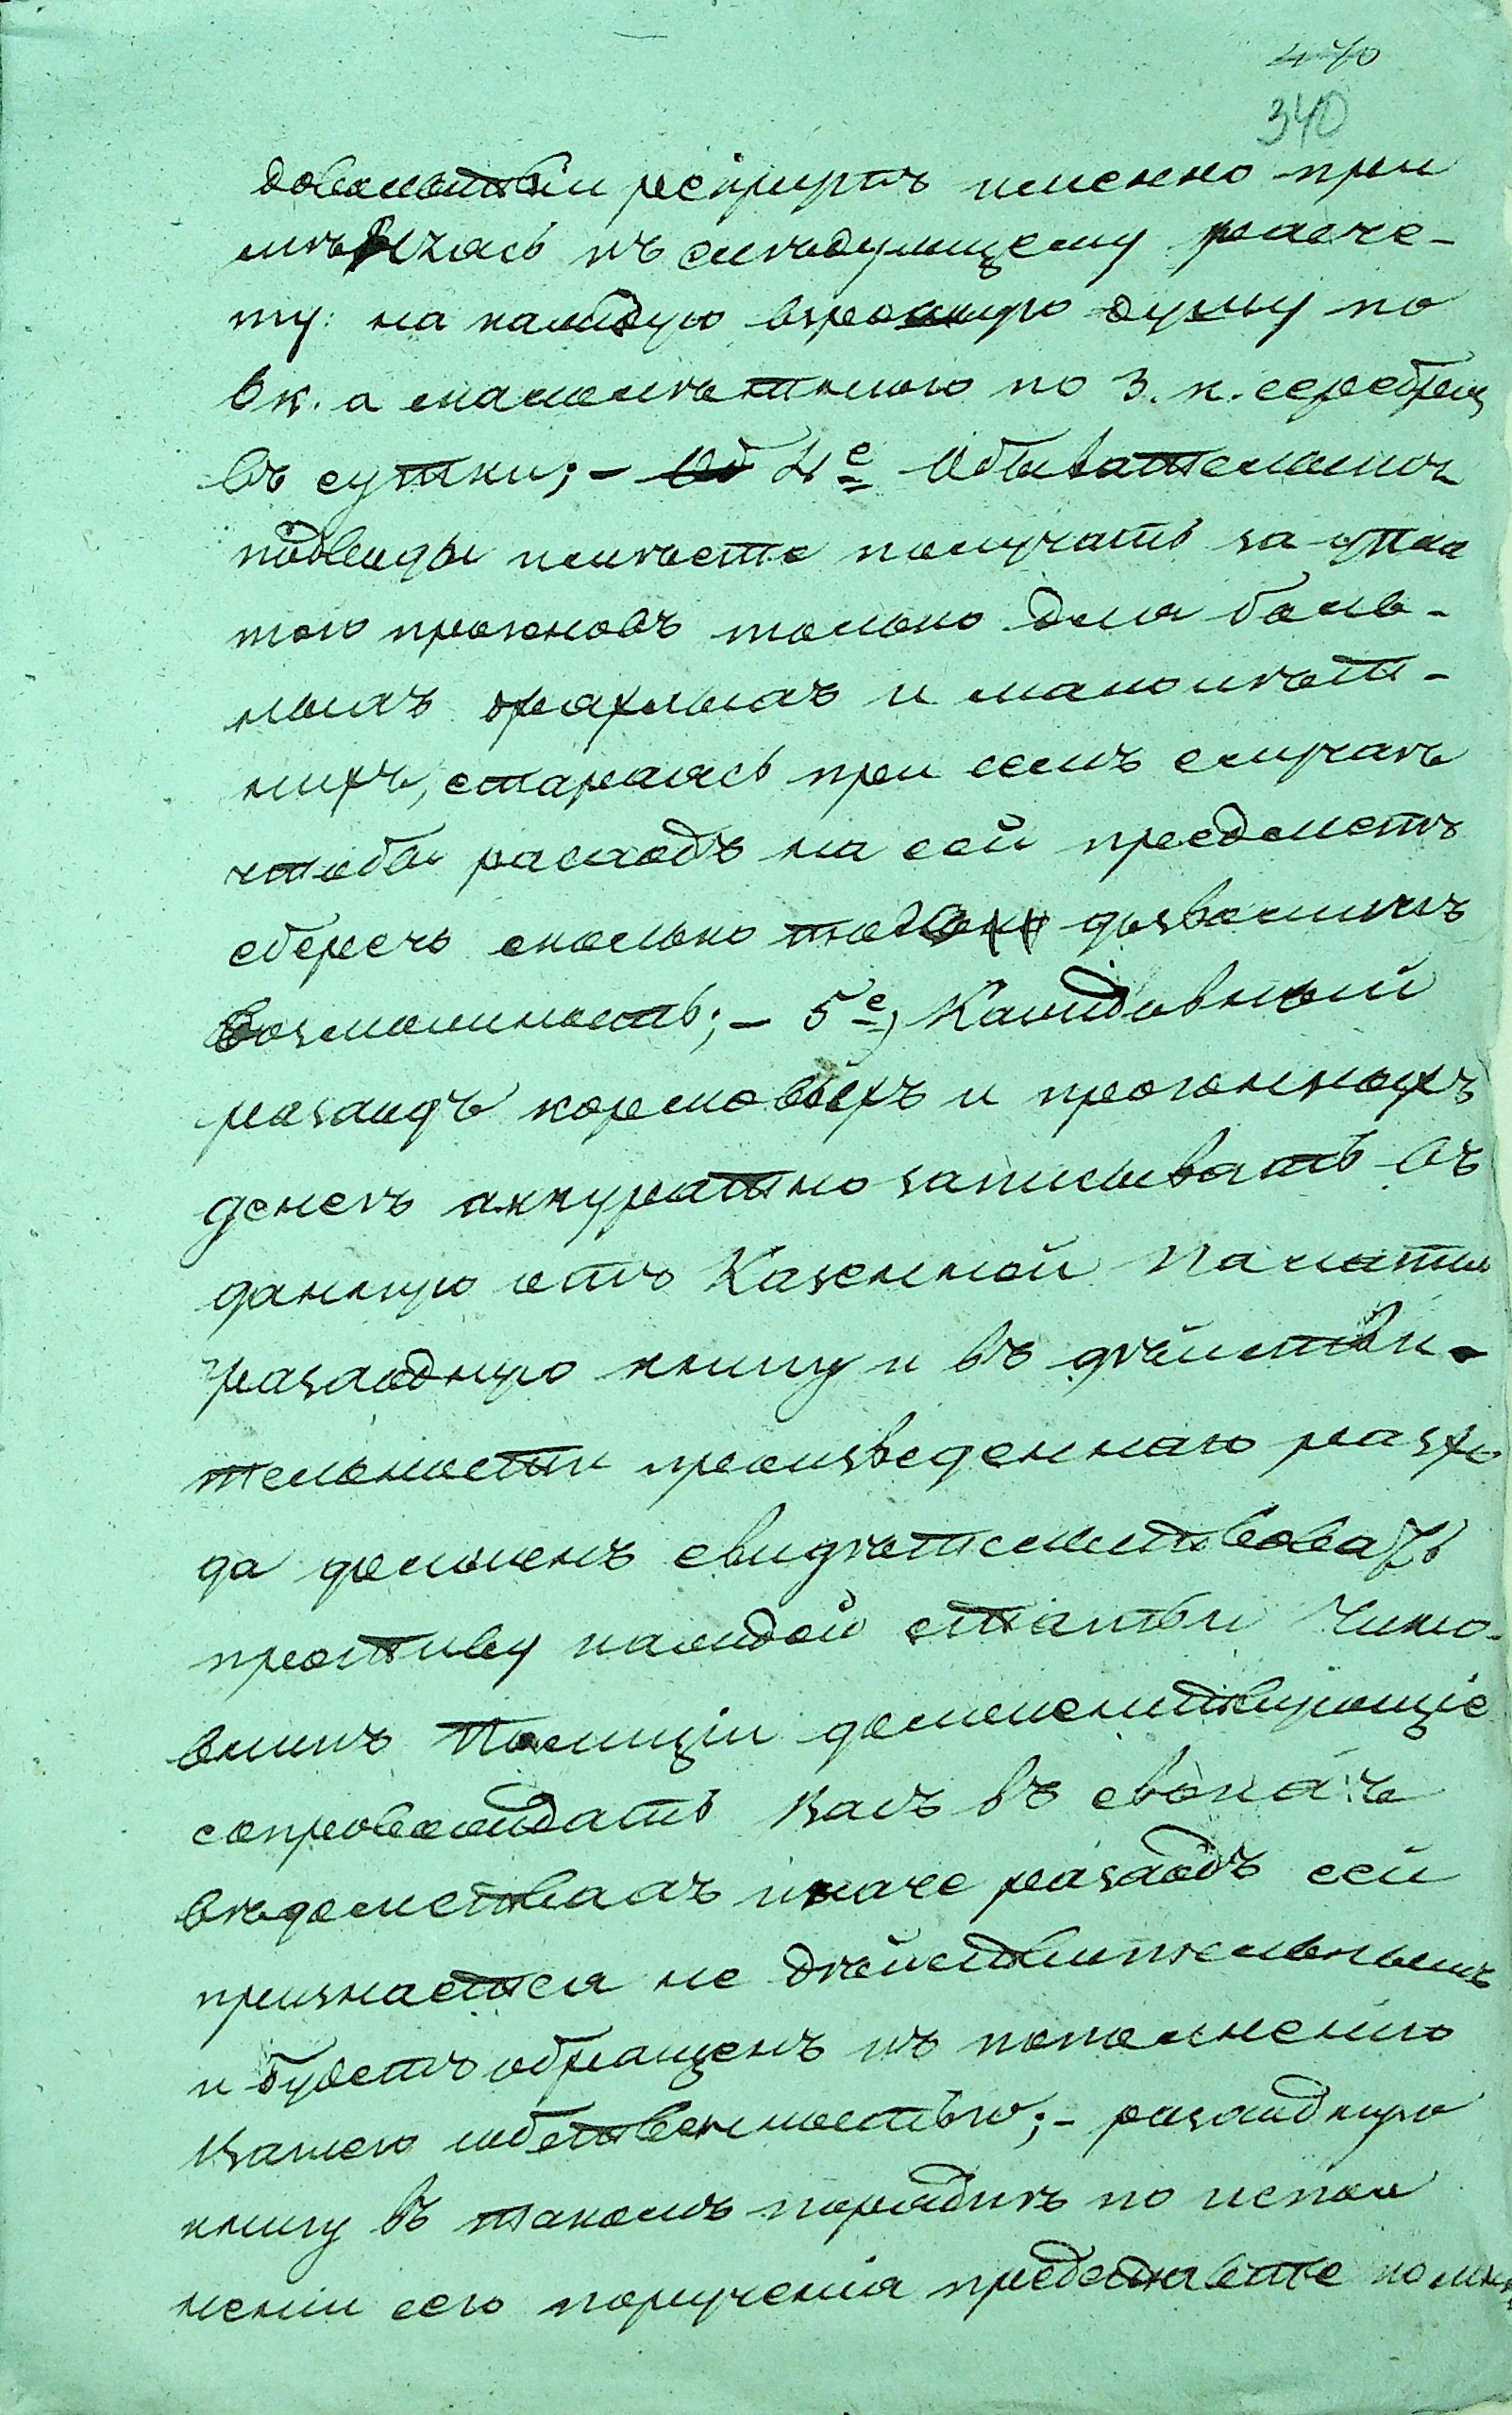 470
340
довольствіи рекрутъ именно при
мѣняясь къ слѣдующему расче-
ту: на каждую взрослую душу по
6 к. а малолѣтнюю по 3. к. серебромъ
въ сутки; – 4е Обывательскія
подводы имѣете получать за упла
тою прогоновъ только для боль-
ныхъ дряхлыхъ и малолѣт-
нихъ, стараясь при семъ случаѣ
чтобы расходъ на сей предметъ
сберечь сколько дозволитъ
возможность; – 5е, Каждовный
расходъ кормовыхъ и прогонныхъ
денегъ аккуратно записывать въ
данную отъ Казенной Палаты
разходную книгу и въ дѣйстви-
тельности произведеннаго разхо
да долженъ свидѣтельствовать
противу каждой статьи Чино-
вникъ Полиціи долженствующіе
сопровождать Васъ въ своихъ
вѣдомствахъ иначе разходъ сей
признается не дѣйствительнымъ
и будетъ обращенъ къ пополненію
Вашею собственностью; – разходную
книгу въ такомъ порядкѣ по испол
неніи сего порученія представьте ко мнѣ